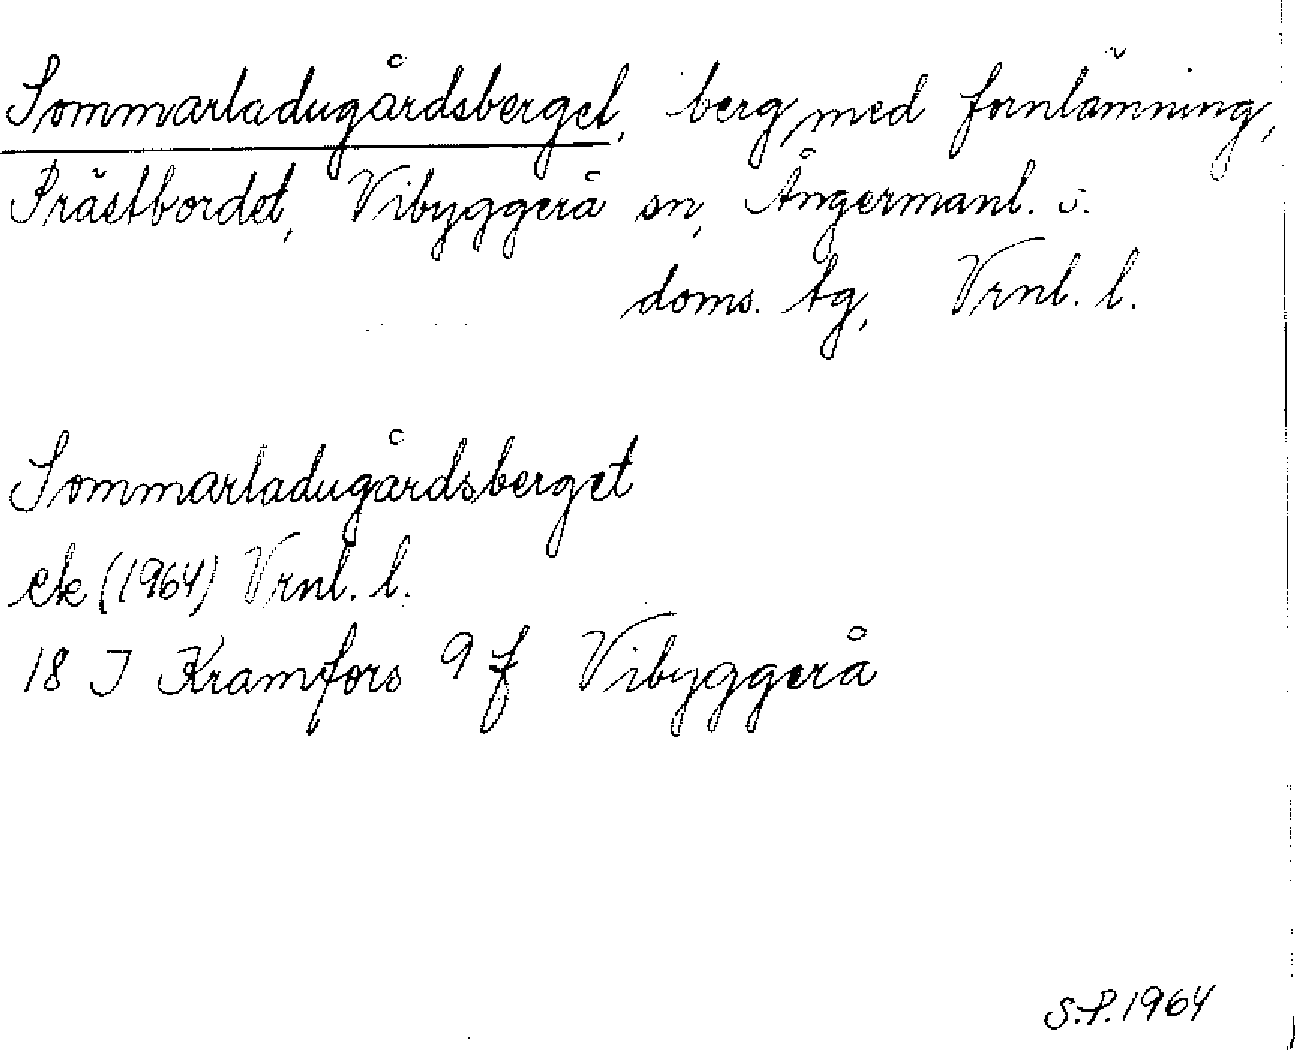 Sommarladugårdsberget, berg med fornlämning,
Prästbordet, Vibyggerå sn, Ångermanl. s.
doms. tg, Vrnl. l.
Sommarladugårdsberget
ek (1964) Vrnl. l.
18 I Kramfors 9 f Vibyggerå
S.P. 1964